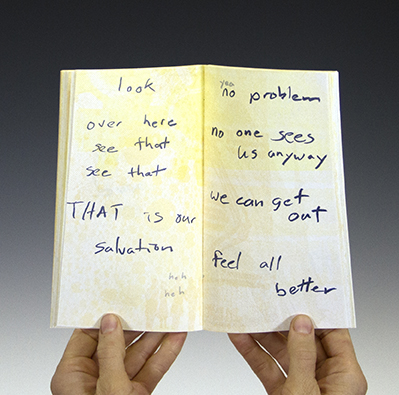 look
over here
see that
see that
THAT is our
salvation
heh
heh
yea
no problem
no one sees
us anyway
we can get
out
feel all
better